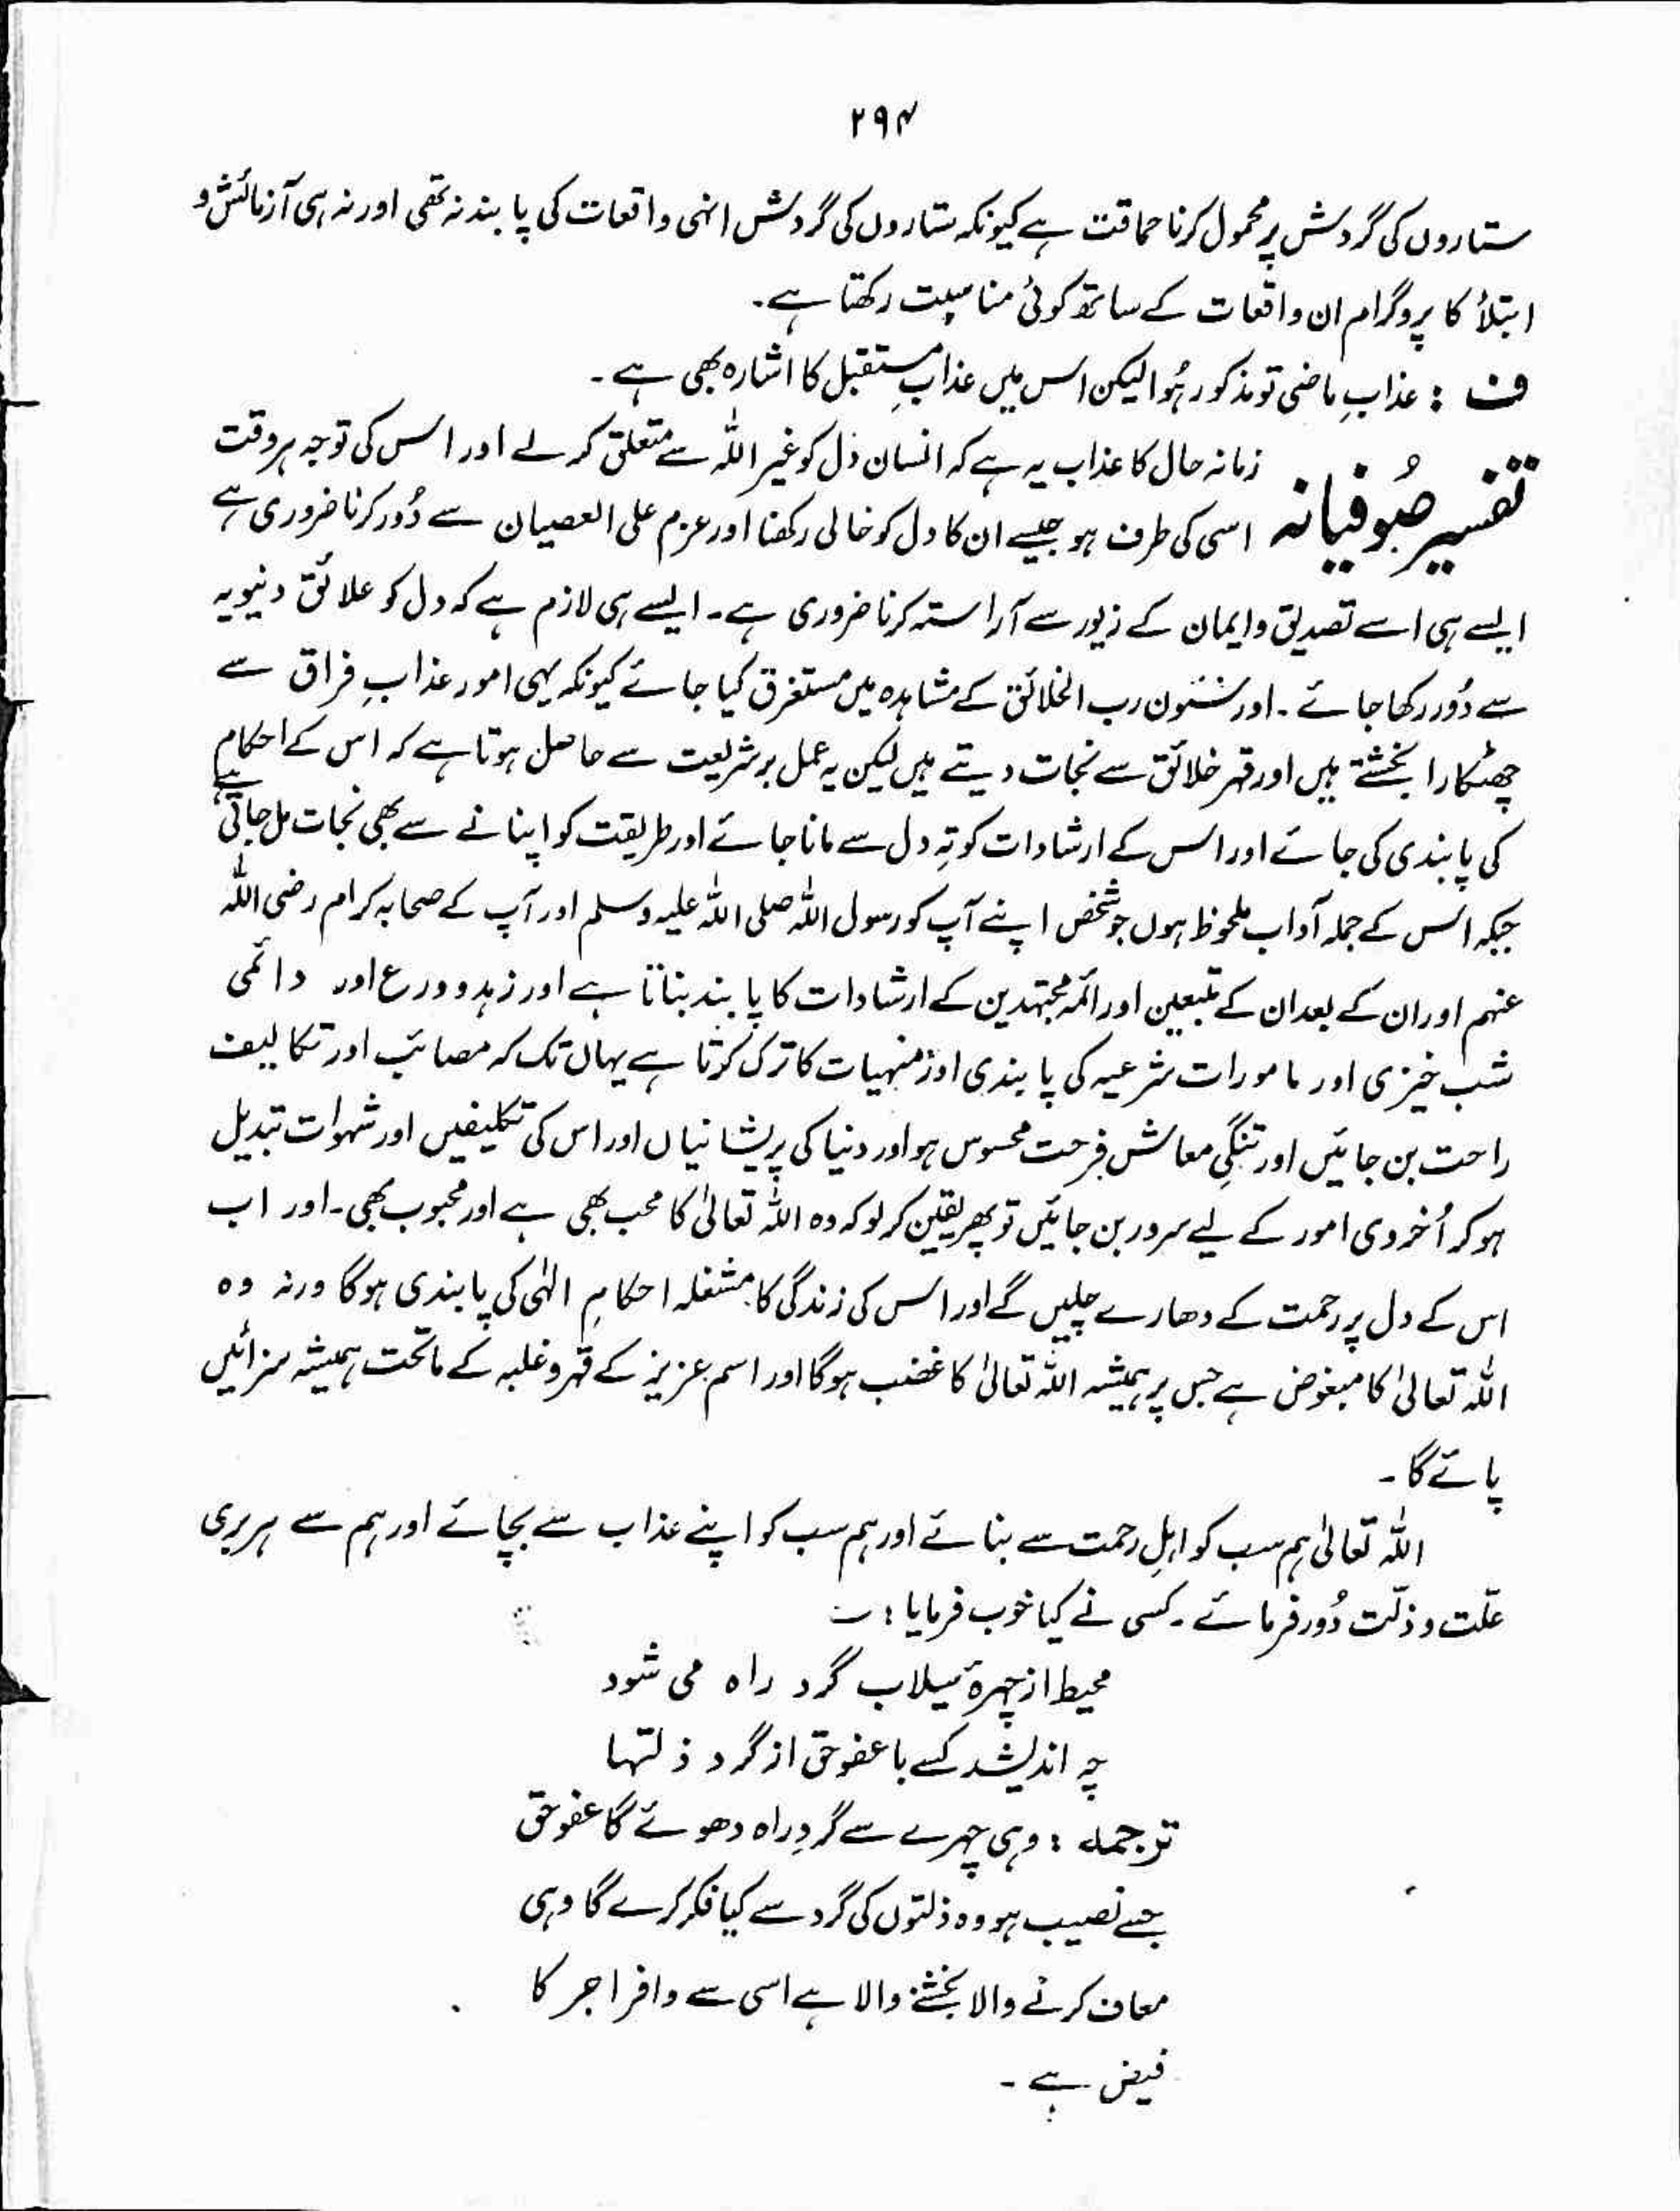 ۲۹۴
ستاروں کی گردش پر محمول کرنا حماقت ہے کیونکہ ستاروں کی گردش انہی واقعات کی پابند نہ تھی اور نہ ہی آزمائش و
ابتلاٗ کا پروگرام ان واقعات کے ساتھ کوئی مناسبت رکھتا ہے۔
ف : عذابِ ماضی تو مذکور ہُوا لیکن اس میں عذابِ مستقبل کا اشارہ بھی ہے۔
تفسیر صُوفیانہ زمانہ حال کا عذاب یہ ہے کہ انسان دل کو غیر اللہ سے متعلق کر لے اور اس کی توجہ ہر وقت
اسی کی طرف ہو جیسے ان کا دل کو خالی رکھنا اور عزم علی العصیان سے دُور کرنا ضروری ہے
ایسے ہی اسے تصدیق و ایمان کے زیور سے آراستہ کرنا ضروری ہے۔ ایسے ہی لازم ہے کہ دل کو علائق دنیویہ
سے دُور رکھا جائے۔ اور شئون رب الخلائق کے مشاہدہ میں مستغرق کیا جائے کیونکہ یہی امور عذابِ فراق سے
چھٹکارا بخشتے ہیں اور قہر خلائق سے نجات دیتے ہیں لیکن یہ عمل بر شریعت سے حاصل ہوتا ہے کہ اس کے احکام
کی پابندی کی جائے اور اس کے ارشادات کو تہِ دل سے مانا جائے اور طریقت کو اپنانے سے بھی نجات مل جاتی ہے
جبکہ اس کے جملہ آداب ملحوظ ہوں جو شخص اپنے آپ کو رسول اللہ صلی اللہ علیہ وسلم اور آپ کے صحابہ کرام رضی اللہ
عنہم اور ان کے بعد ان کے متبعین اور ائمہ مجتہدین کے ارشادات کا پابند بناتا ہے اور زہد و ورع اور دائمی
شب خیزی اور مامورات شرعیہ کی پابندی اور منہیات کا ترک کرتا ہے یہاں تک کہ مصائب اور تکالیف
راحت بن جائیں اور تنگیِ معاش فرحت محسوس ہو اور دنیا کی پریشانیاں اور اس کی تکلیفیں اور شہوات تبدیل
ہو کر اُخروی امور کے لیے سرور بن جائیں تو پھر یقین کر لو کہ وہ اللہ تعالیٰ کا محب بھی ہے اور محبوب بھی۔ اور اب
اس کے دل پر رحمت کے دھارے چلیں گے اور اس کی زندگی کا مشغلہ احکامِ الٰہی کی پابندی ہوگا ورنہ وہ
اللہ تعالیٰ کا مبغوض ہے جس پر ہمیشہ اللہ تعالیٰ کا غضب ہوگا اور اسم عزیز کے قہر و غلبہ کے ماتحت ہمیشہ سزائیں
پائے گا۔
اللہ تعالیٰ ہم سب کو اہلِ رحمت سے بنائے اور ہم سب کو اپنے عذاب سے بچائے اور ہم سے ہر بری
علّت و ذلّت دُور فرمائے۔ کسی نے کیا خوب فرمایا : ؎
محیط از چہرۂ سیلاب گرد راہ می شود
چہ اندیشد کسے با عفو حق از گرد ذلتہا
ترجمہ : وہی چہرے سے گردِ راہ دھوئے گا عفوِ حق
جسے نصیب ہو وہ ذلتوں کی گرد سے کیا فکر کرے گا وہی
معاف کرنے والا بخشنے والا ہے اسی سے وافر اجر کا
فیض ہے۔